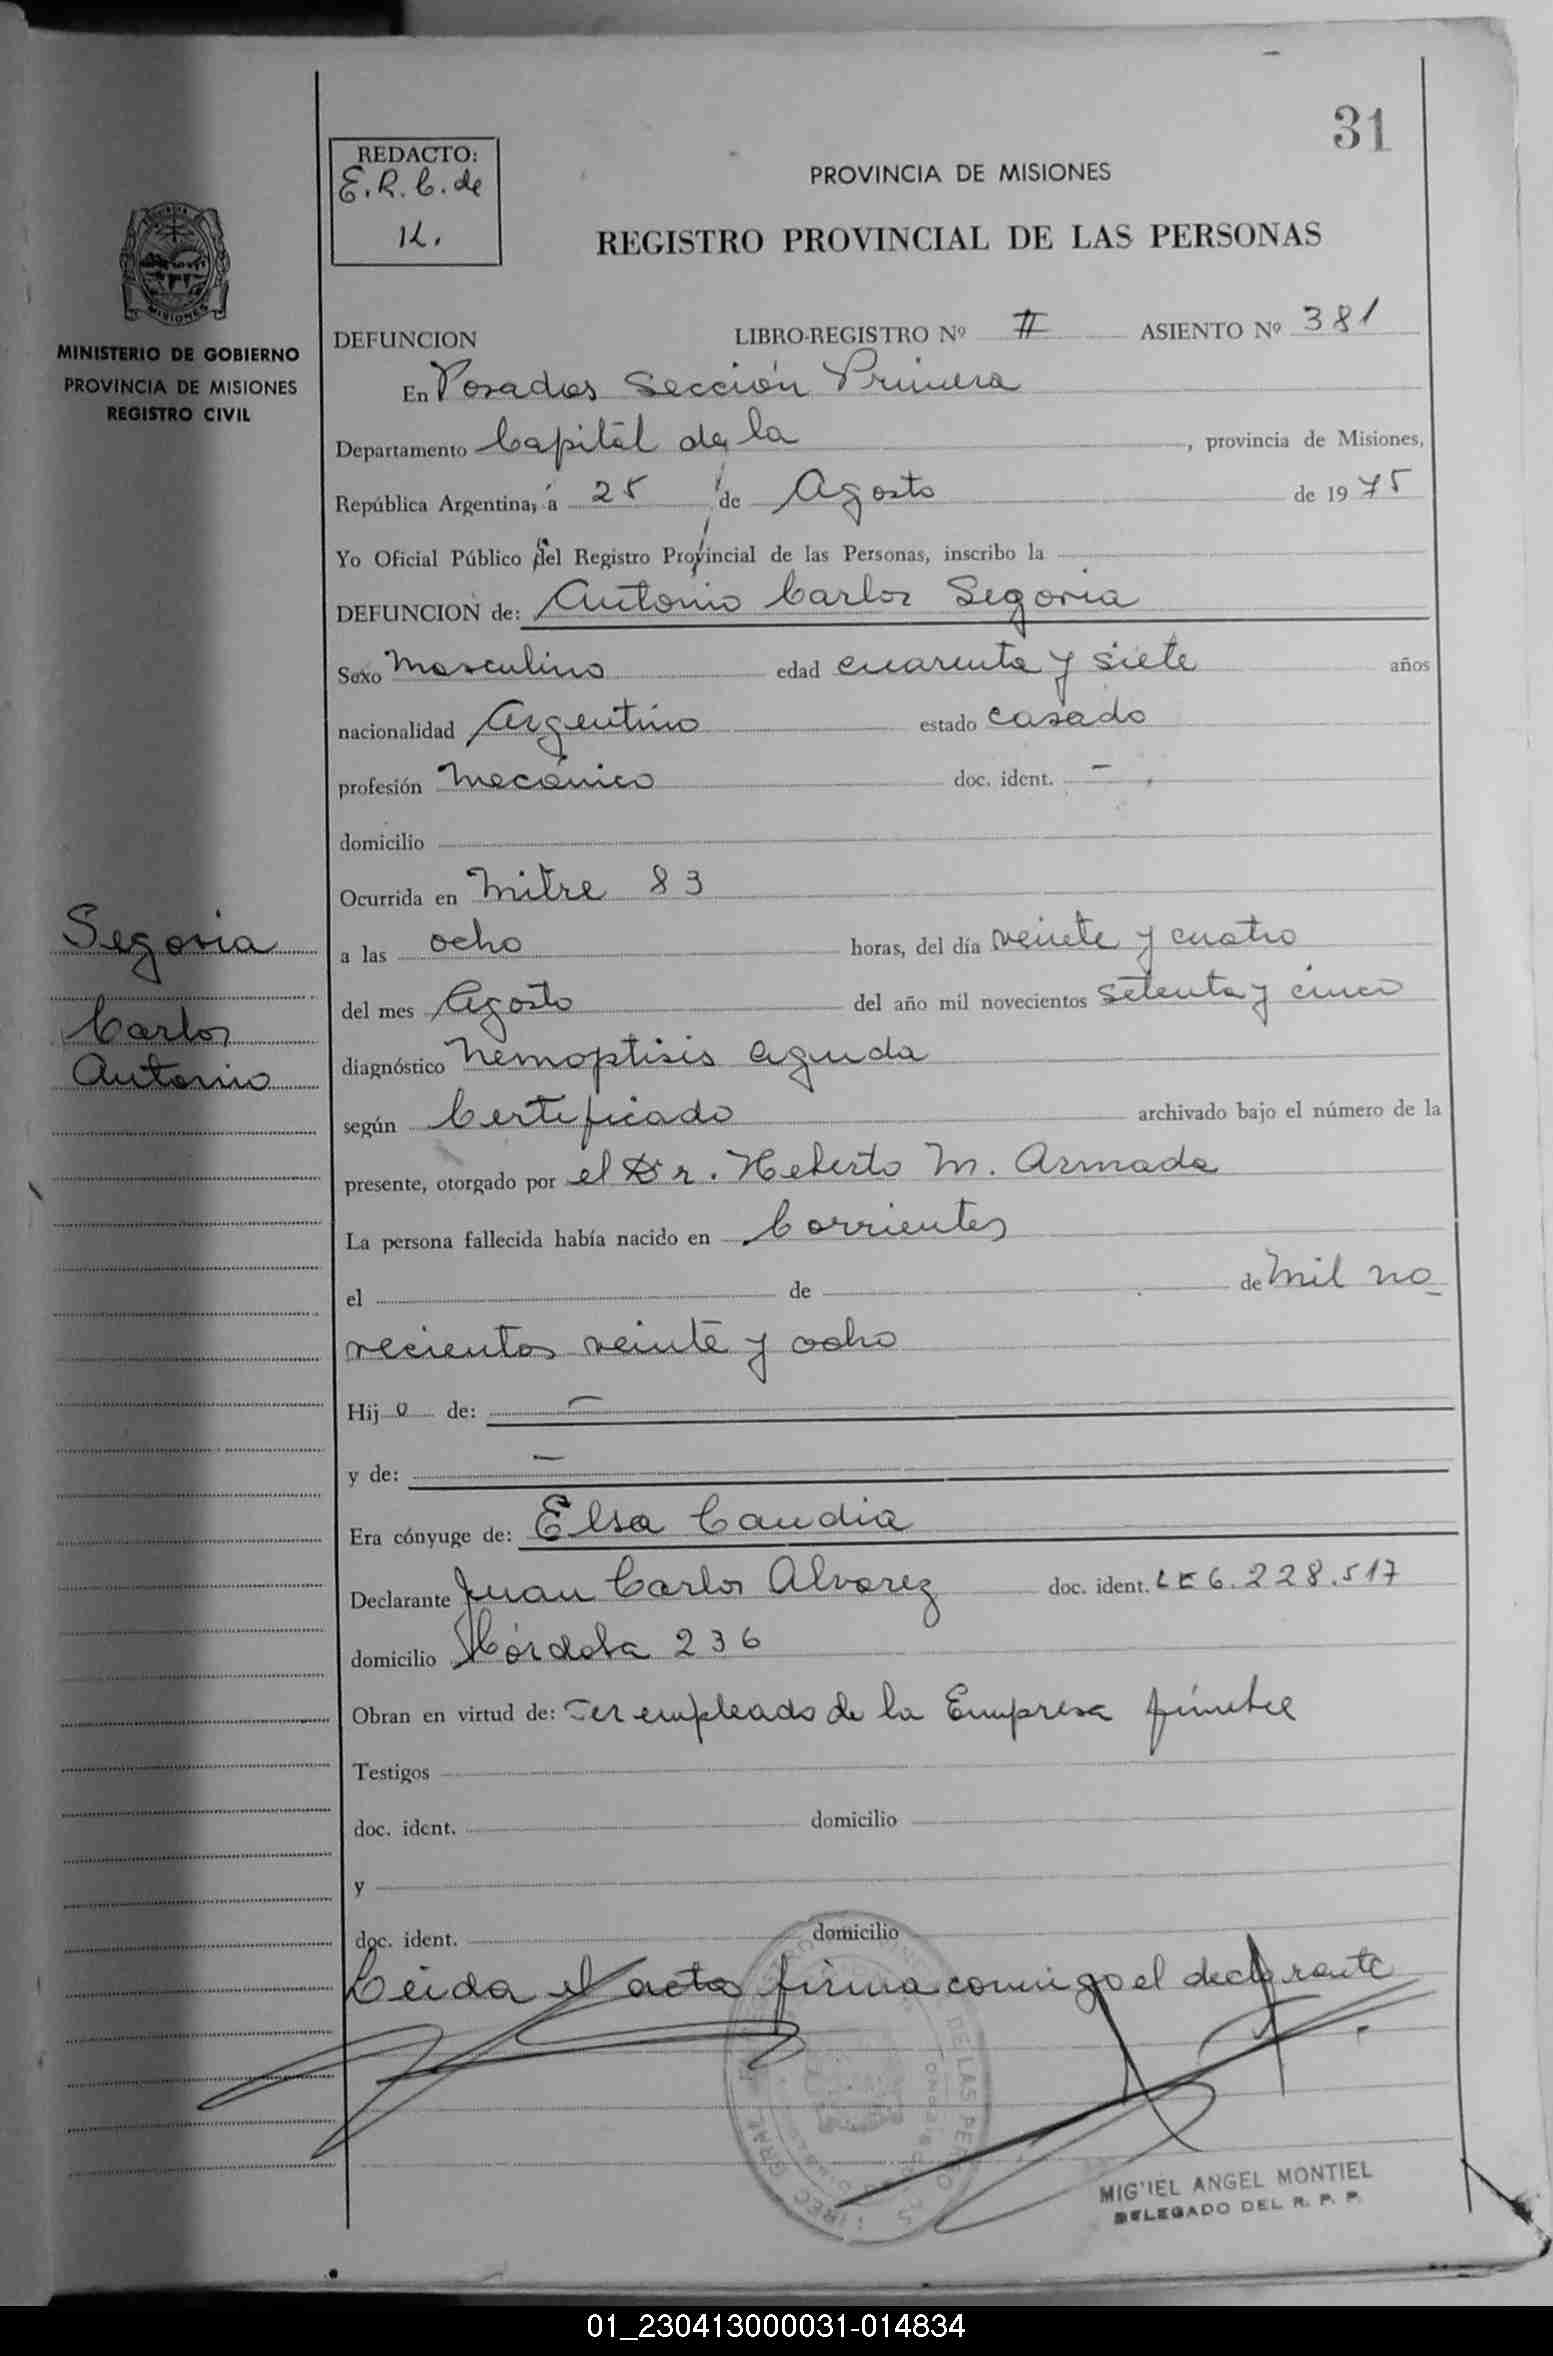 31
REDACTO:
E.R.C. de
K.
PROVINCIA DE MISIONES
REGISTRO PROVINCIAL DE LAS PERSONAS
MISIONES
MINISTERIO DE GOBIERNO
PROVINCIA DE MISIONES
REGISTRO CIVIL
DEFUNCION LIBRO-REGISTRO Nº II ASIENTO Nº 381
En Posadas Sección Primera
Departamento Capital de la, provincia de Misiones,
República Argentina, a 25 de Agosto de 1975
Yo Oficial Público del Registro Provincial de las Personas, inscribo la
DEFUNCION de: Antonio Carlos Segovia
Sexo Masculino edad cuarenta y siete años
nacionalidad Argentino estado casado
profesión Mecánico doc. ident. -
domicilio
Ocurrida en Mitre 83
a las ocho horas, del día veinte y cuatro
del mes Agosto del año mil novecientos setenta y cinco
diagnóstico Hemoptisis aguda
según Certificado archivado bajo el número de la
presente, otorgado por el Dr. Heberto M. Armada
La persona fallecida había nacido en Corrientes
el de de Mil no
vecientos veinte y ocho
Hijo de: -
y de: -
Era cónyuge de: Elsa Candia
Declarante Juan Carlos Alvarez doc. ident. LE 6.228.517
domicilio Córdoba 236
Obran en virtud de: Ser empleado de la Empresa fúnebre
Testigos
doc. ident. domicilio
y
doc. ident. domicilio
Leida el acta firma conmigo el declarante
Segovia
Carlos
Antonio
DE LAS PERSO
MIGUEL ANGEL MONTIEL
DELEGADO DEL R. P. P.
01_230413000031-014834